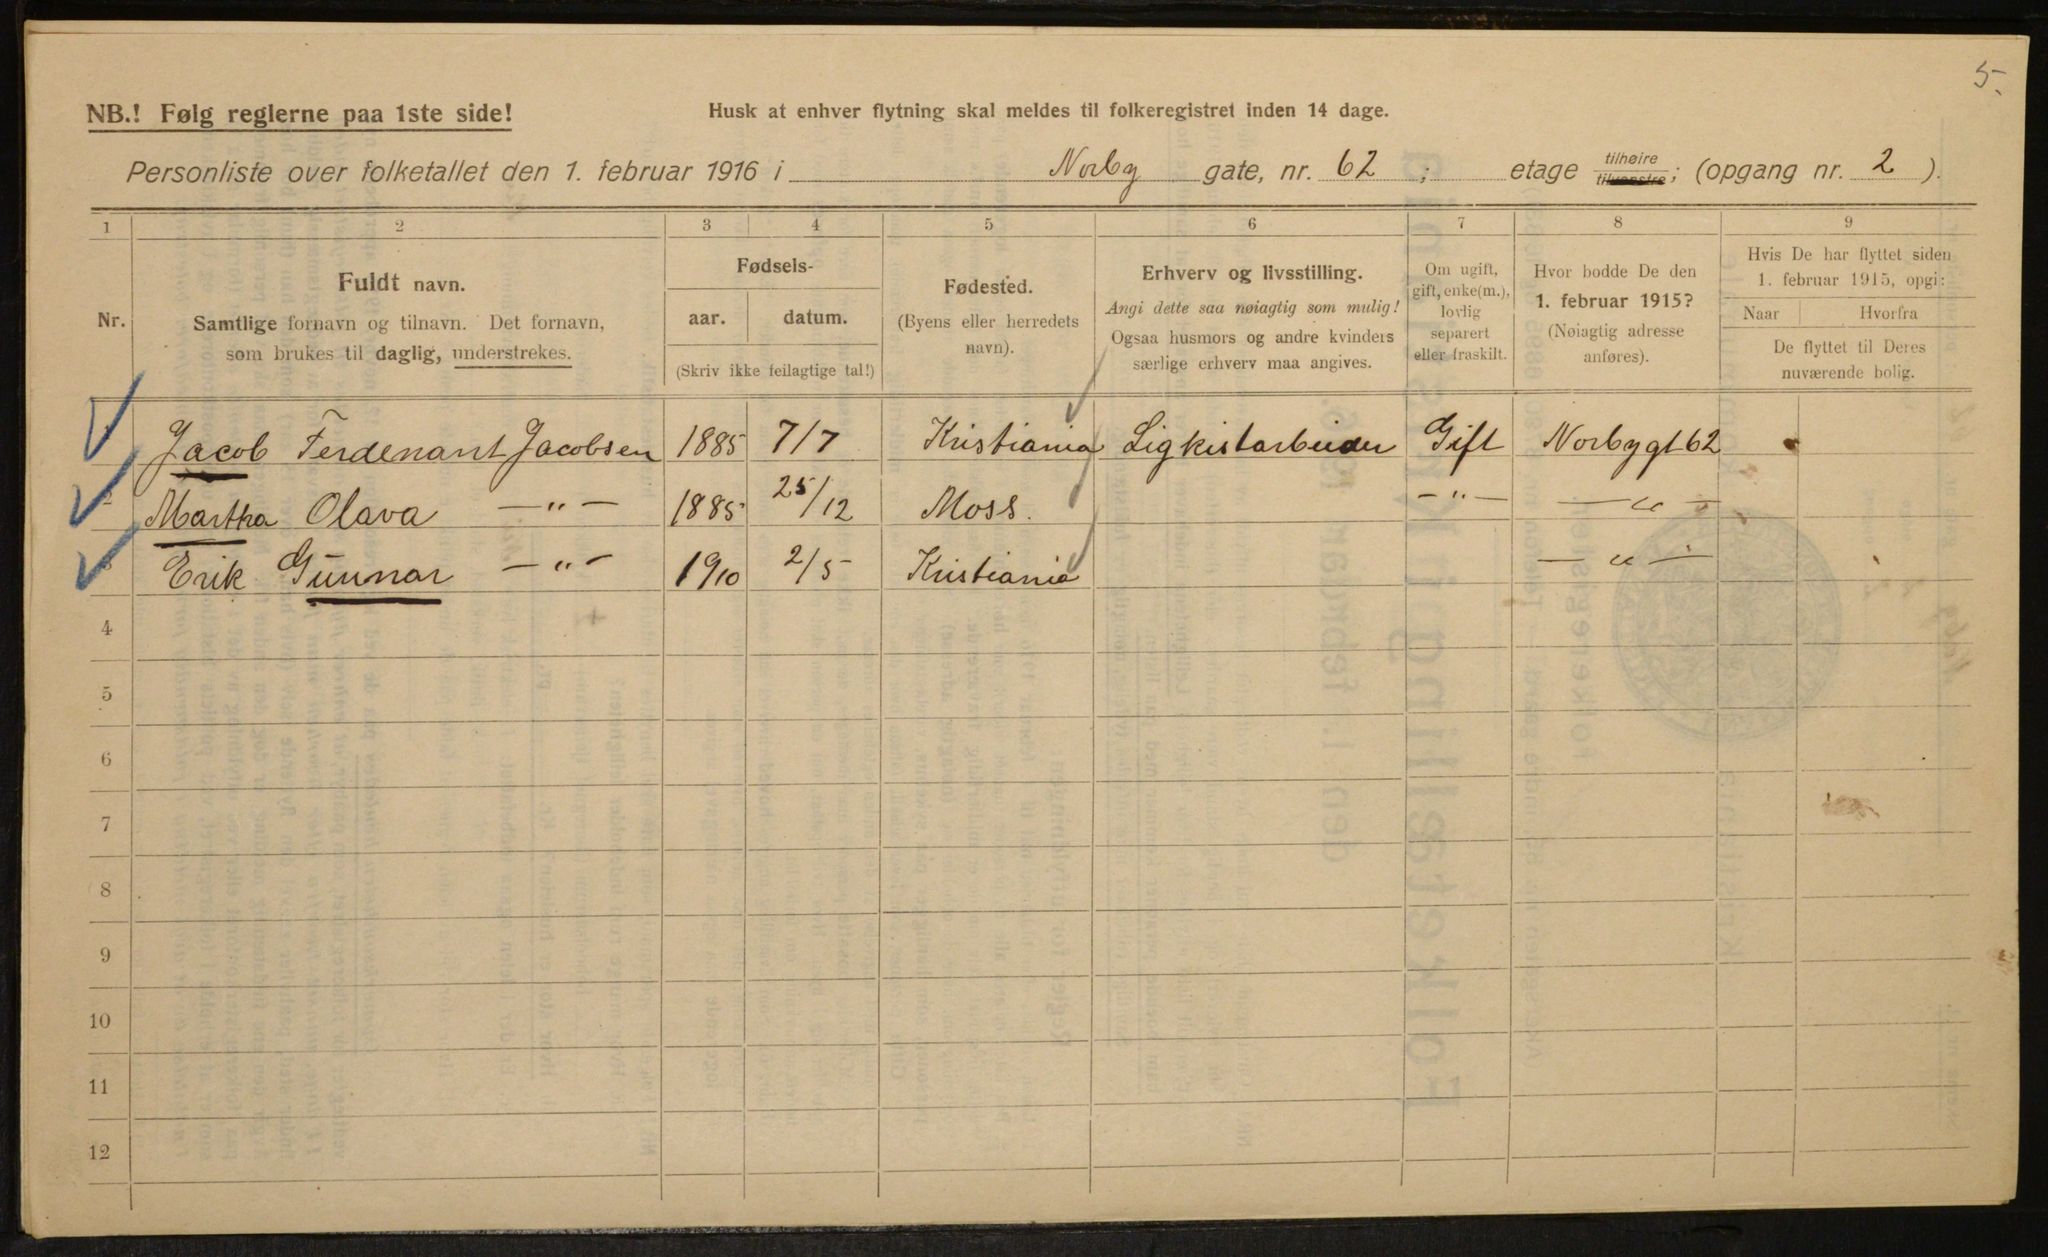 5.
NB.! Følg reglerne paa 1ste side!
Husk at enhver flytning skal meldes til folkeregistret inden 14 dage.
Personliste over folketallet den 1. februar 1916 i Norby gate, nr. 62 ; etage tilhøire tilvenstre; (opgang nr. 2 ).
1 2 3 4 5 6 7 8 9
Nr.
Fuldt navn.
Samtlige fornavn og tilnavn. Det fornavn,
som brukes til daglig, understrekes.
Fødsels-
aar. datum.
(Skriv ikke feilagtige tal!)
Fødested.
(Byens eller herredets
navn).
Erhverv og livsstilling.
Angi dette saa nøiagtig som mulig!
Ogsaa husmors og andre kvinders
særlige erhverv maa angives.
Om ugift,
gift, enke(m.),
lovlig
separert
eller fraskilt.
Hvor bodde De den
1. februar 1915?
(Nøiagtig adresse
anføres).
Hvis De har flyttet siden
1. februar 1915, opgi:
Naar Hvorfra
De flyttet til Deres
nuværende bolig.
Jacob Ferdenant Jacobsen 1885 7/7 Kristiania Ligkistarbeider Gift Norbygt 62
Martha Olava —„— 1885 25/12 Moss. —„— —„—
Erik Gunnar —„— 1910 2/5 Kristiania —„—
4
5
6
7
8
9
10
11
12